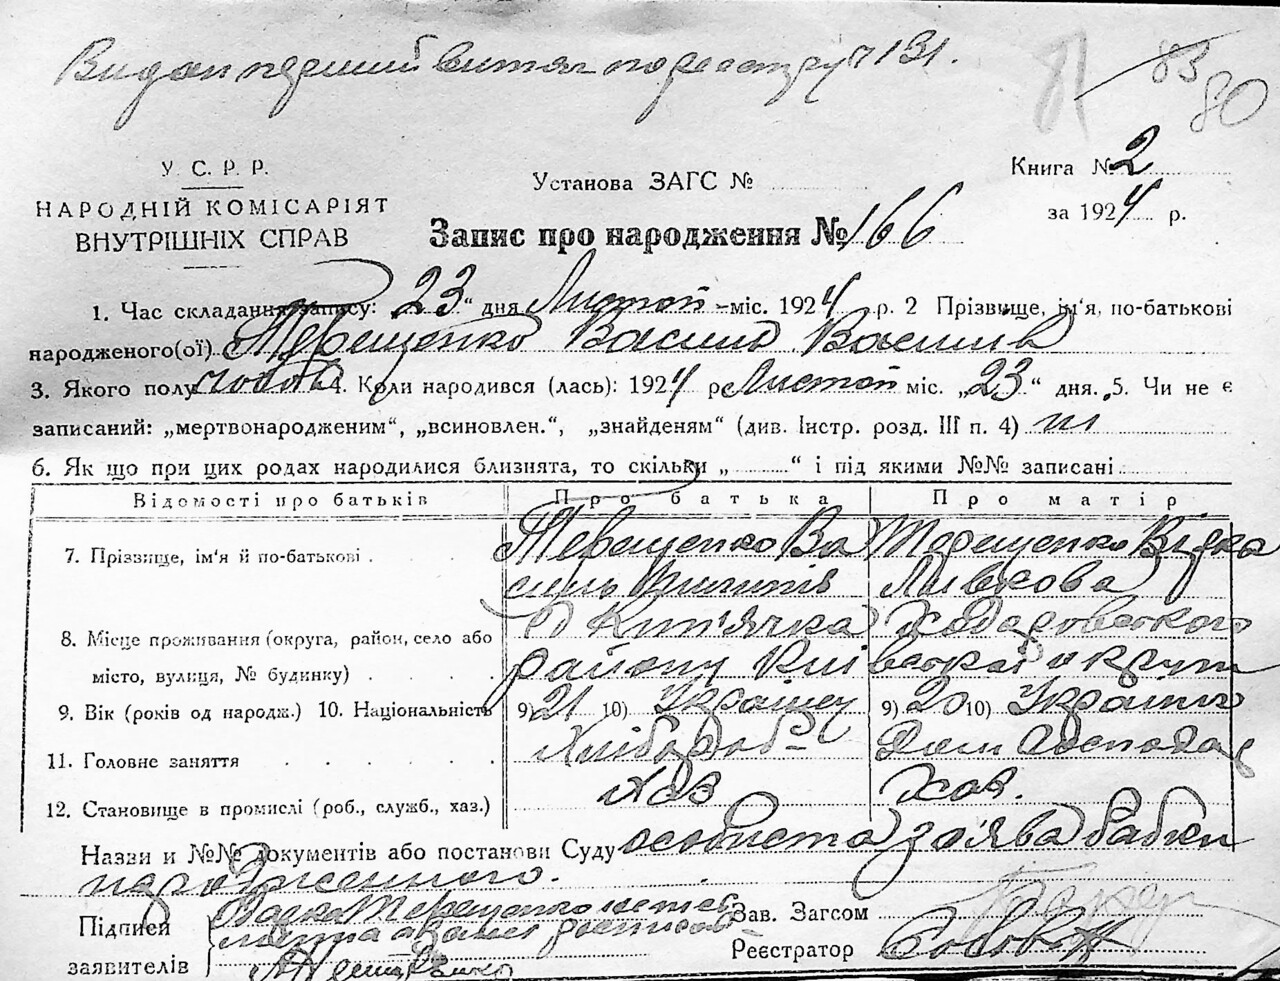 Видан перший витяг по реестру ч 131.
81 83 80
У. С. Р. Р.
НАРОДНІЙ КОМІСАРІЯТ
ВНУТРІШНІХ СПРАВ
Установа ЗАГС №
Книга № 2
за 1924 р.
Запис про народження № 166
1. Час складання запису: 23 " дня Листоп -міс. 1924 р. 2 Прізвище, ім'я, по-батькові
народженого(ої) Терещенко Василь Васильів
3. Якого полу чоловіч 4. Коли народився (лась): 1924 р Листоп міс. „ 23 " дня. 5. Чи не є
записаний: „мертвонародженим", „всиновлен.", „знайденям" (див. Інстр. розд. III п. 4) ні
6. Як що при цих родах народилися близнята, то скільки „ " і під якими №№ записані
Відомості про батьків Про батька Про матір
7. Прізвище, ім'я й по-батькові . Терещенко Ва Терещенко Відка
силь Левкова
8. Місце проживання (округа, район, село або с Кип'ячка Ходоровського
місто, вулиця, № будинку) . району Київської округи
9. Вік (років од народж.) 10. Національність 9) 21 10) Українец 9) 20 10) Українк
11. Головне заняття Хлібороб Дом Господар
12. Становище в промислі (роб., служб., хаз.) Хаз Хаз.
Назви и №№ документів або постанови Суду особиста заява бабки
народженного.
Підписи Терещенко
заявителів
Зав. Загсом
Реєстратор